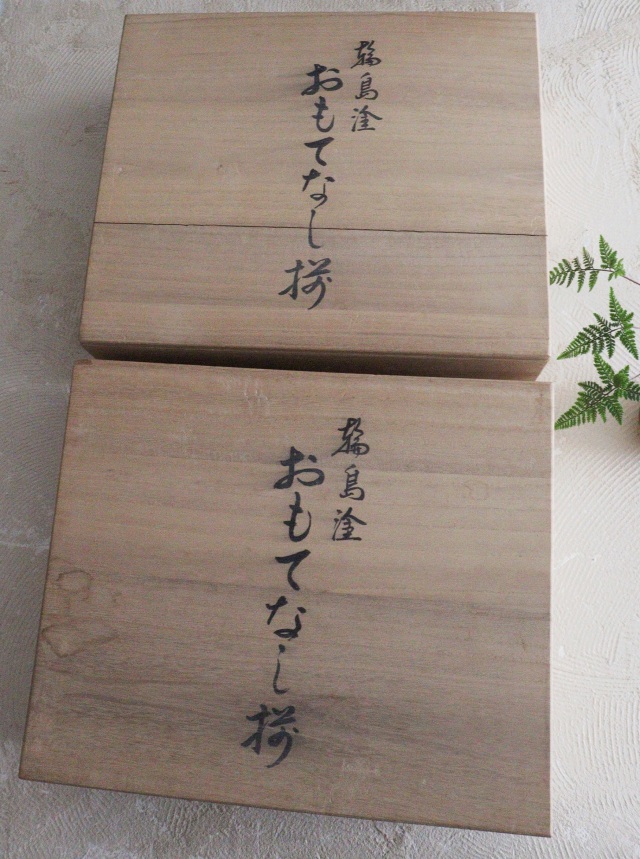 輪島塗
おもてなし揃
輪島塗
おもてなし揃